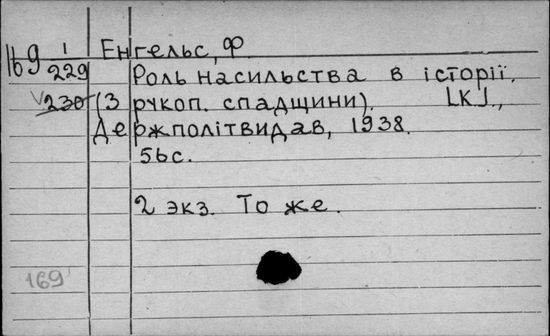 169 1/229 Енгельс, Ф.
Роль насильства в історії.
230 (З рукоп. спадщини). [К.],
Держполітвидав, 1938.
56с.
2 экз. То же.
169